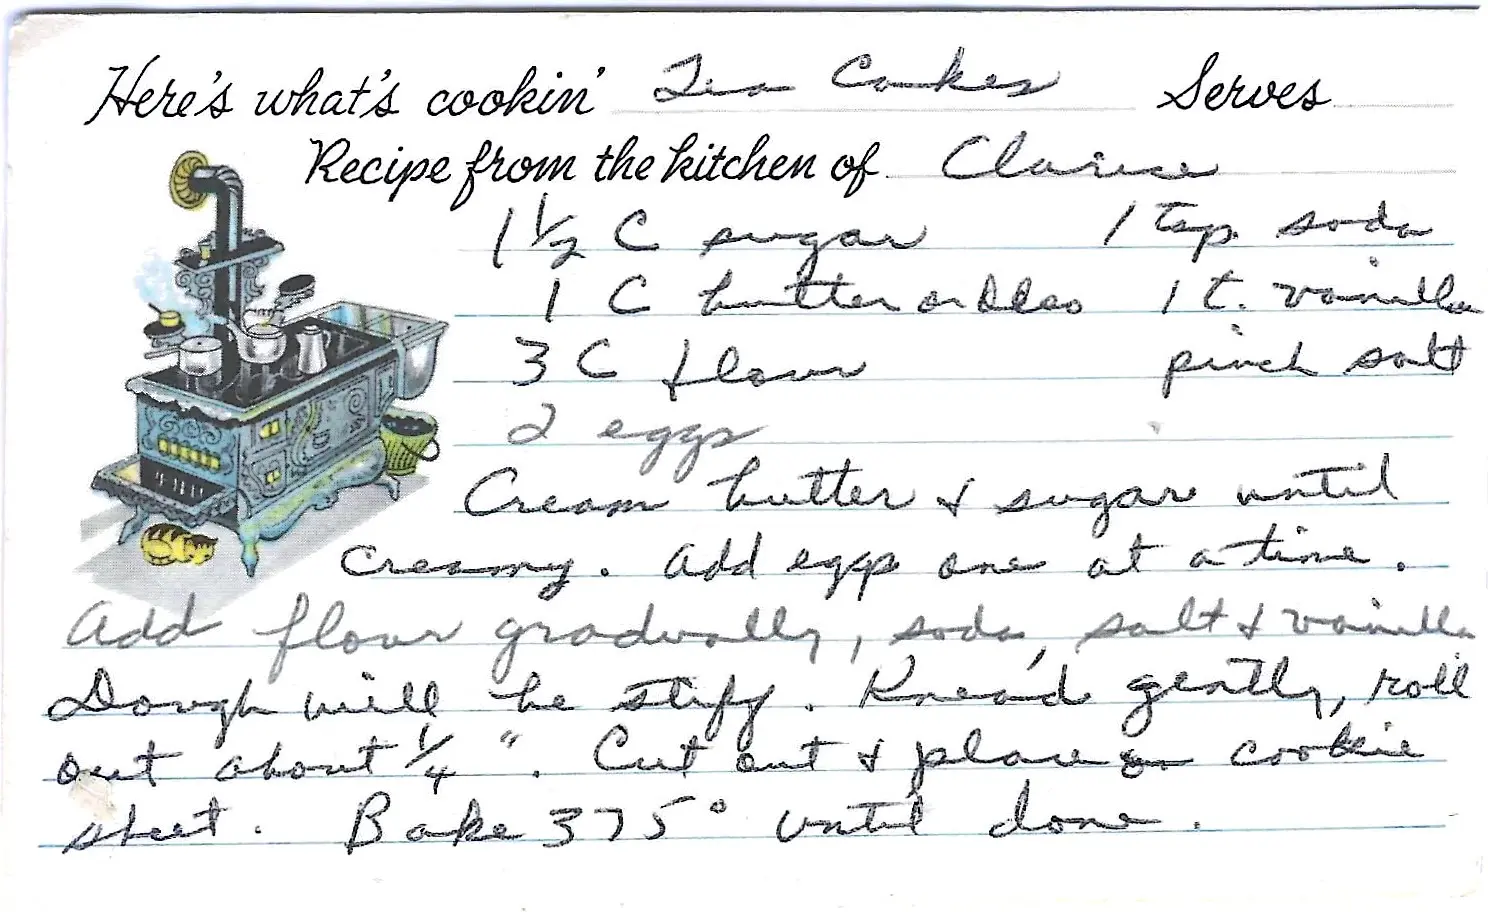 Here's what's cookin' Tea Cakes Serves
Recipe from the kitchen of Clarice
1 1/2 C sugar 1 tsp. soda
1 C butter or Oleo 1 t. vanilla
3 C flour pinch salt
2 eggs
Cream butter & sugar until
creamy. Add eggs one at a time.
Add flour gradually, soda, salt & vanilla
Dough will be stiff. Knead gently, roll
out about 1/4 ". Cut out & place on cookie
sheet. Bake 375° until done.